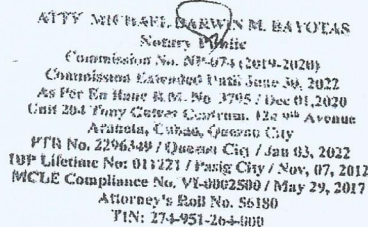 ATTY MICHAEL DARWIN M. BAYOTAS
Notary Public
Commission No. NP-074 (2019-2020)
Commission Extended Until June 30, 2022
As Per En Banc B.M. No 3795 / Dec 01,2020
Unit 204 Tony Centrum. 12th Avenue
Araneta, Cubao, Quezon City
PTR No. 2296349 / Quezon City / Jan 03, 2022
IBP Lifetime No: 011221 / Pasig City / Nov, 07, 2012
MCLE Compliance No. VI-0002500 / May 29, 2017
Attorney's Roll No. 56180
TIN: 274-951-264-000